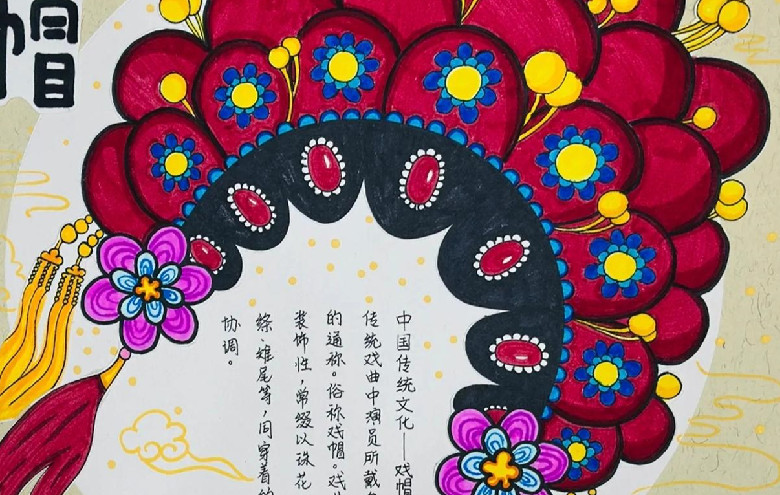 帽
中国传统文化——戏帽
传统戏曲中演员所戴
的通称。俗称戏帽。戏
装饰性，常缀以珠花
绦、雉尾等，同穿着的
协调。